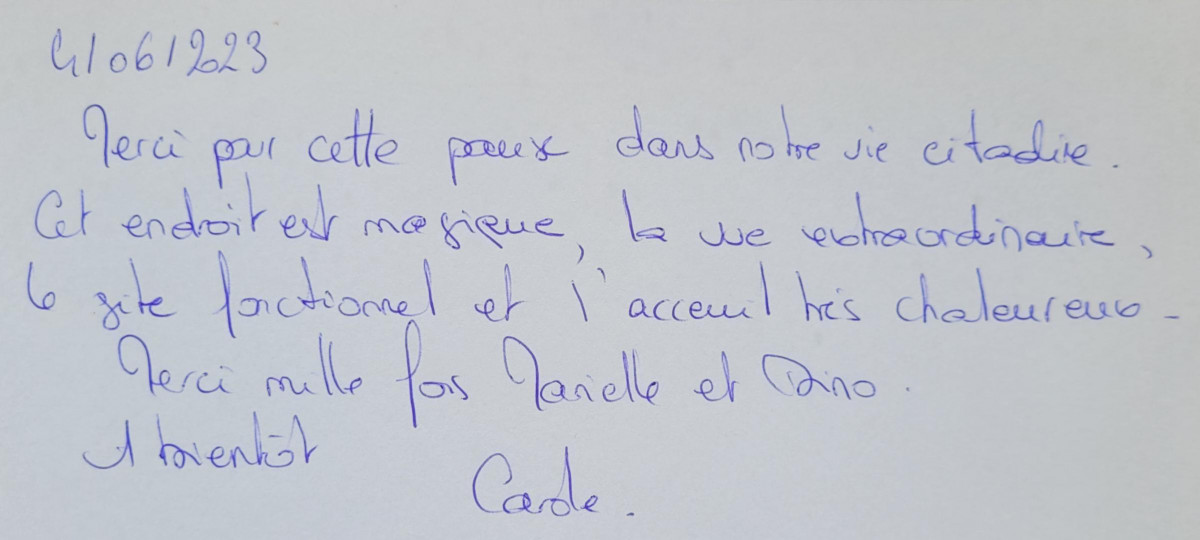 4/06/2023
Merci par cette pause dans notre vie citadine.
Cet endroit est magique, la vue extraordinaire,
le gite fonctionnel et l'acceuil très chaleureux -
Merci mille fois Marielle et Dino.
A bientôt
Carole.